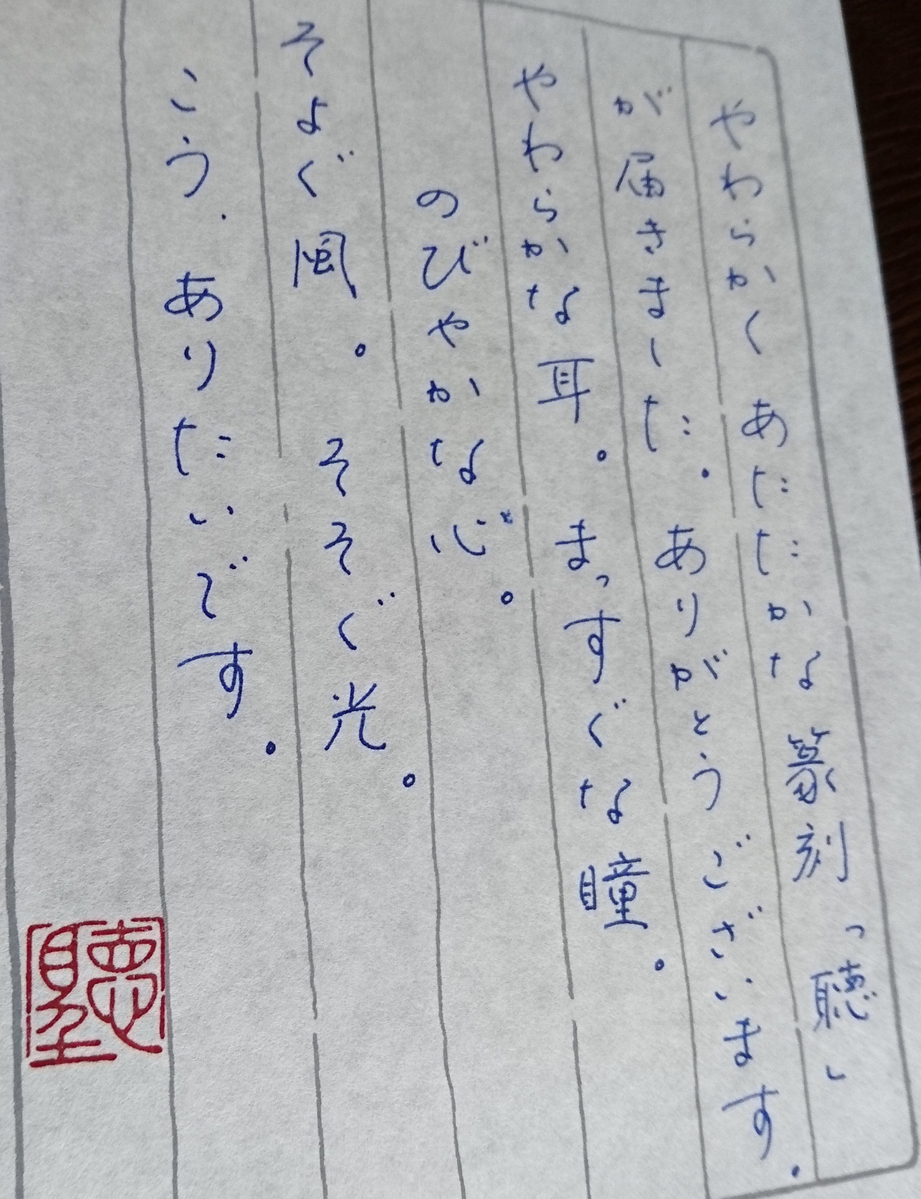 やわらかくあたたかな篆刻「聴」
が届きました。ありがとうございます。
やわらかな耳。まっすぐな瞳。
のびやかな心。
そよぐ風。そそぐ光。
こう、ありたいです。
聽